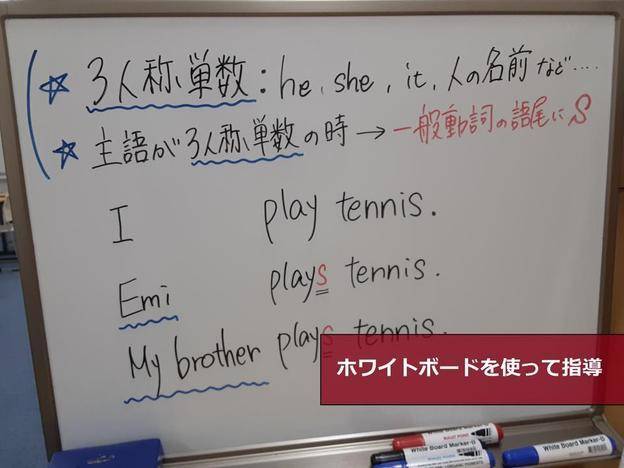 ☆ 3人称単数：he, she, it, 人の名前 など....
☆ 主語が3人称単数の時 → 一般動詞の語尾にS
I play tennis.
Emi plays tennis.
My brother plays tennis.
ホワイトボードを使って指導
White Board Marker-B
White Board Marker-B
White Board Marker-B